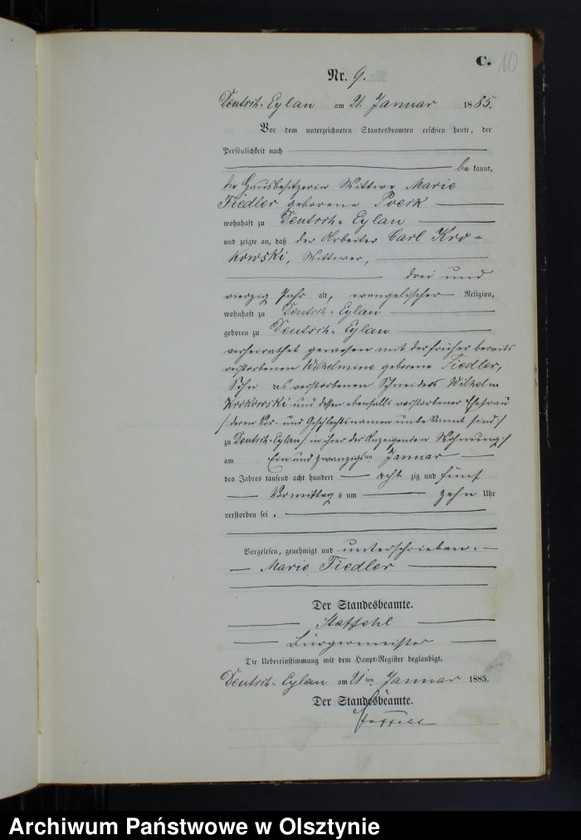 C.
10
Nr. 9.
Deutsch-Eylau am 21. Januar 1885.
Vor dem unterzeichneten Standesbeamten erschien heute, der
Persönlichkeit nach
bekannt,
die Hausbesitzerin Wittwe Marie
Fiedler geborene Poeck
wohnhaft zu Deutsch-Eylau
und zeigte an, daß der Arbeiter Carl Kro-
kowski, Wittwer,
drei und
vierzig Jahr alt, evangelischer Religion,
wohnhaft zu Deutsch-Eylau
geboren zu Deutsch-Eylau
verheirathet gewesen mit der früher bereits
verstorbenen Wilhelmine geborene Fiedler,
Sohn des verstorbenen Schneiders Wilhelm
Krokowski und dessen ebenfalls verstorbener Ehefrau
(deren Vor- und Geschlechtsnamen unbekannt sind)
zu Deutsch-Eylau (in ihrer der Anzeigenden Wohnung)
am Ein und zwanzigsten Januar
des Jahres tausend acht hundert acht zig und fünf
Vormittags um zehn Uhr
verstorben sei.
Vorgelesen, genehmigt und unterschrieben.
Marie Fiedler
Der Standesbeamte.
Staffehl
Bürgermeister
Die Uebereinstimmung mit dem Haupt-Register beglaubigt.
Deutsch-Eylau am 21ten Januar 1885.
Der Standesbeamte.
Staffehl
Archiwum Państwowe w Olsztynie